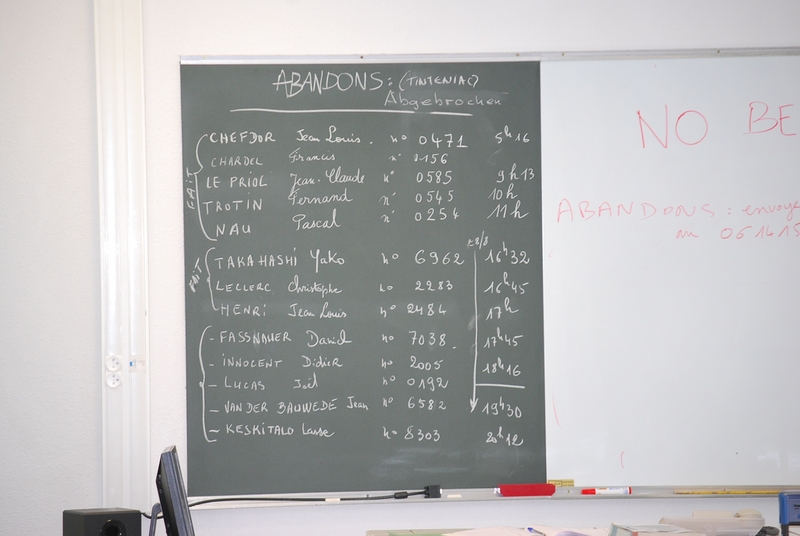 ABANDONS: (TINTENIAC)
Abgebrochen
CHEFDOR Jean Louis. n° 0471 5h16
CHARDEL Francis n° 0156
LE PRIOL Jean-Claude n° 0585 9h13
TROTIN Fernand n° 0545 10h
NAU Pascal n° 0254 11h
FAIT
TAKAHASHI Yako n° 6962 16h32
LECLERC Christophe no 2283 16h45
HENRI Jean Louis n° 2484 17h
FAIT
- FASSNAUER David no 7038. 17h45
- INNOCENT Didier n° 2005 18h16
- LUCAS Joël n° 0192
- VAN DER BAUWEDE Jean n° 6582 19h30
- KESKITALO Lasse n° 8303 20h12
NO BE
ABANDONS: envoye
au 061415